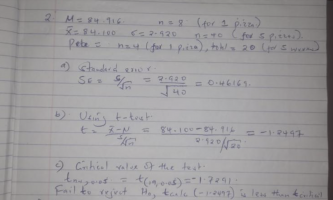 2. M = 84.916 n = 8 (for 1 pizza)
x̄ = 84.100 s = 2.920 n = 40 (for 5 pizzas)
n = 4 (for 1 pizza), total = 20 (for 5
a) Standard error
SE = s/√n = 2.920/√40 = 0.46169
b) Using t-test
t = x̄-M / s/√n = 84.100-84.916 / 2.920/√20 = -1.2497
c) Critical value of the test
t(19,0.05) = -1.7291
Fail to reject H₀, t calc (-1.2497) is less than